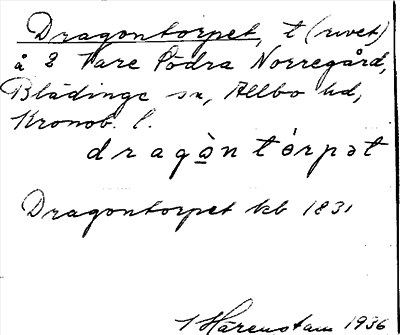 Dragontorpet, t (rivet)
å 2 Tare Södra Norregård,
Blädinge sn, Allbo hd,
Kronob. l.
dragὰn tórpət
Dragontorpet kb 1831
I Härenstam 1936